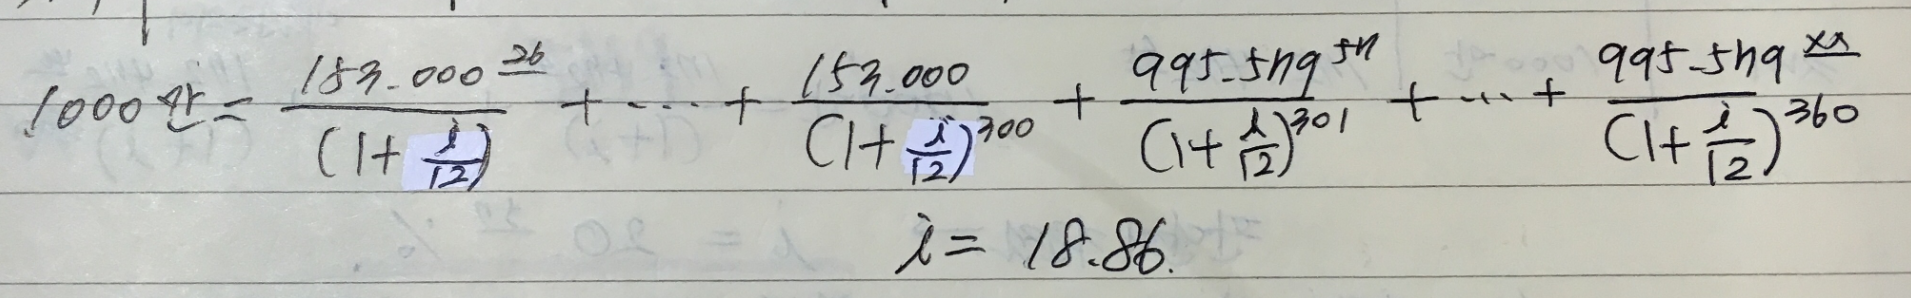 1000만 = 153.000^26 / (1+i/12) + ‥‥ + 153.000 / (1+i/12)^300 + 995.579^57 / (1+i/12)^301 + ‥‥ + 995.579 / (1+i/12)^360
i = 18.86.